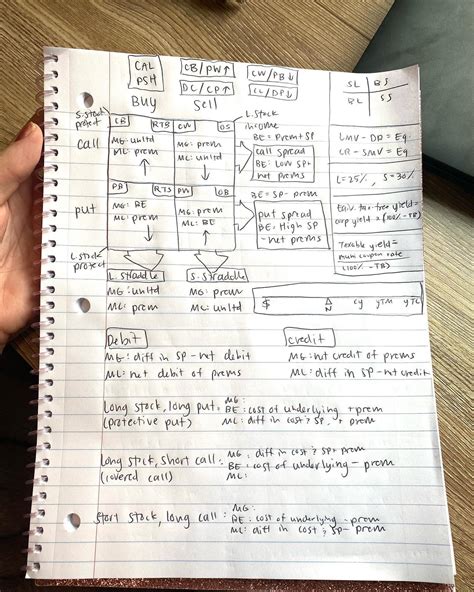 CAL
PSH
CB/PW↑
CW/PB↓
DC/CP↑
CL/DP↓
SL | BS
BL | SS
BUY
Sell
S. Stock
protect
CB
RTB
CW
OS
L. Stock
income
call
MG: unltd
ML: prem
MG: prem
ML: unltd
BE = Prem + SP
call spread
BE: Low SP +
net prems
LMV - DR = Eq.
CR - SMV = Eq.
L = 25%, S = 30%
PB
RTS
PW
OB
BE = SP - prem
put
MG: BE
ML: prem
MG: prem
ML: BE
put spread
BE: High SP
- net prems
Equiv. tax-free yield =
corp yield × (100% - TB)
Taxable yield =
muni coupon rate
(100% - TB)
L. stock
protect
L. Straddle
S. Straddle
MG: unltd
ML: prem
MG: prem
ML: unltd
$
N
CY YTM YTC
Debit
Credit
MG: diff in SP - net debit
MG: net credit of prems
ML: net debit of prems
ML: diff in SP - net credit
Long stock, long put =
(protective put)
MG:
BE: cost of underlying + prem
ML: diff in cost & SP, + prem
Long stock, short call:
(covered call)
MG: diff in cost & SP + prem
BE: cost of underlying - prem
ML:
stock, long call:
MG:
BE: cost of underlying - prem
ML: diff in cost & SP - prem